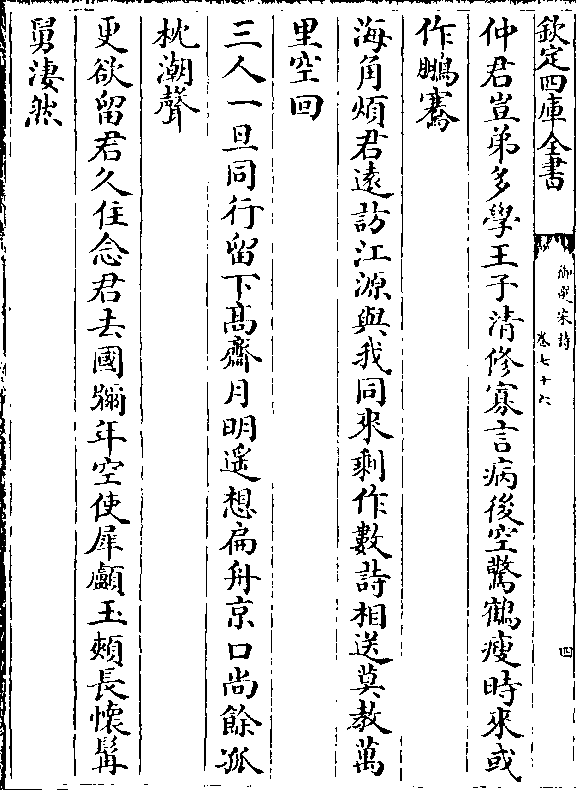 欽定四庫全書
御選宋詩
卷七十六
四
仲君豈弟多學王子清修寡言病後空驚鶴瘦時來或
作鵬騫
海角煩君遠訪江源與我同來剩作數詩相送莫教萬
里空回
三人一旦同行留下高齋月明遥想扁舟京口尚餘孤
枕潮聲
更欲留君久住念君去國彌年空使犀顱玉頰長懷髯
舅淒然